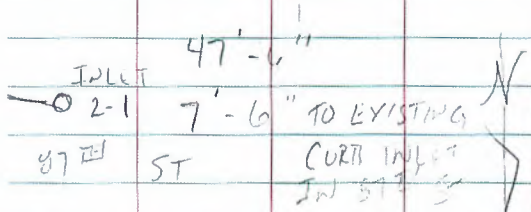 47'-6"
INLET
2-1 7'-6" TO EXISTING
57TH ST CURB INLET
IN 57TH ST
N